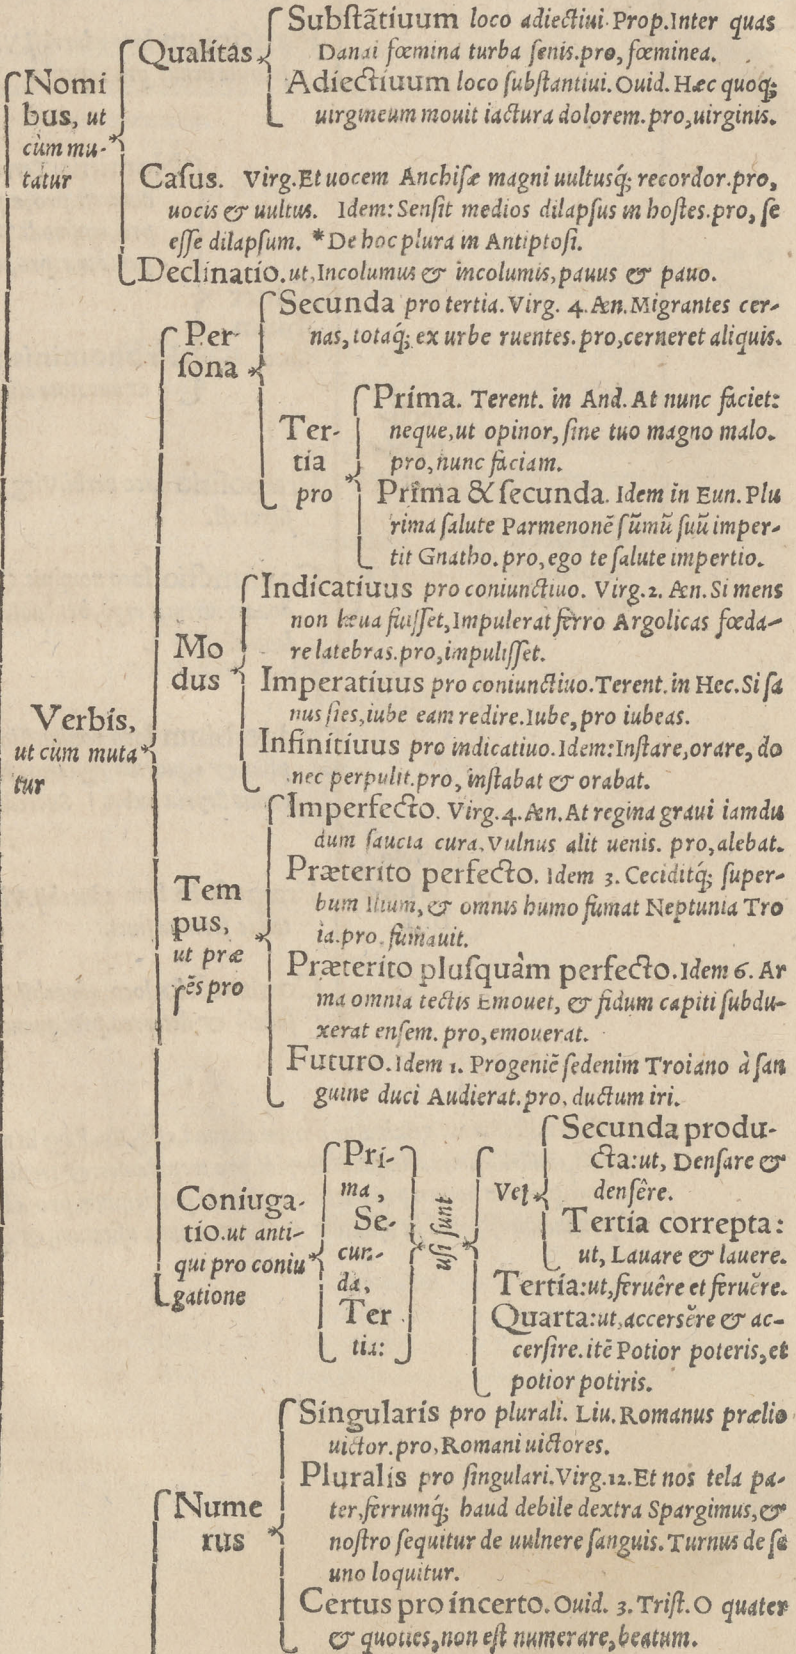 Nomi
bus, ut
cùm mu-
tatur
Qualitas
Substãtiuum loco adiectiui. Prop. Inter quas
Danai fœmina turba senis. pro, fœminea.
Adiectiuum loco substantiui. Ouid. Hæc quoq;
uirgineum mouit iactura dolorem. pro, uirginis.
Casus. Virg. Et uocem Anchisæ magni uultusq́; recordor. pro,
uocis & uultus. Idem: Sensit medios dilapsus in hostes. pro, se
esse dilapsum. *De hoc plura in Antiptosi.
Declinatio. ut, Incolumus & incolumis, pauus & pauo.
Verbis,
ut cùm muta
tur
Per
sona
Secunda pro tertia. Virg. 4. Æn. Migrantes cer-
nas, totaq́; ex urbe ruentes. pro, cerneret aliquis.
Ter-
tia
pro
Prima. Terent. in And. At nunc faciet:
neque, ut opinor, sine tuo magno malo.
pro, nunc faciam.
Prima & secunda. Idem in Eun. Plu
rima salute Parmenonẽ sũmũ suũ imper-
tit Gnatho. pro, ego te salute impertio.
Mo
dus
Indicatiuus pro coniunctiuo. Virg. 2. Æn. Si mens
non læua fuisset, Impulerat ferro Argolicas fœda-
re latebras. pro, impulisset.
Imperatiuus pro coniunctiuo. Terent. in Hec. Si sa
nus sies, iube eam redire. Iube, pro iubeas.
Infinitiuus pro indicatiuo. Idem: Instare, orare, do
nec perpulit. pro, instabat & orabat.
Tem
pus,
ut præ
sẽs pro
Imperfecto. Virg. 4. Æn. At regina graui iamdu
dum saucia cura, Vulnus alit uenis. pro, alebat.
Præterito perfecto. Idem 3. Ceciditq́; super-
bum Ilium, & omnis humo fumat Neptunia Tro
ia. pro, fumauit.
Præterito plusquàm perfecto. Idem 6. Ar
ma omnia tectis Emouet, & fidum capiti subdu-
xerat ensem. pro, emouerat.
Futuro. Idem 1. Progeniẽ sedenim Troiano à san
guine duci Audierat. pro, ductum iri.
Coniuga-
tio. ut anti-
qui pro coniu
gatione
Pri-
ma,
Se-
cun-
da,
Ter
tia:
usi sunt
Vel
Secunda produ-
cta: ut, Densare &
densêre.
Tertia correpta:
ut, Lauare & lauere.
Tertia: ut, feruêre et feruĕre.
Quarta: ut, accersĕre & ac-
cersire. itẽ Potior poteris, et
potior potiris.
Nume
rus
Singularis pro plurali. Liu. Romanus prælio
uictor. pro, Romani uictores.
Pluralis pro singulari. Virg. 12. Et nos tela pa-
ter, ferrumq́; haud debile dextra Spargimus, &
nostro sequitur de uulnere sanguis. Turnus de se
uno loquitur.
Certus pro incerto. Ouid. 3. Trist. O quater
& quoties, non est numerare, beatum.